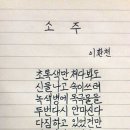 소주
이환천
초록색만 쳐다봐도
신물나고 속이쓰려
녹색병에 뚜구둥을
두번다시 안마신다
다짐하고 있었건만